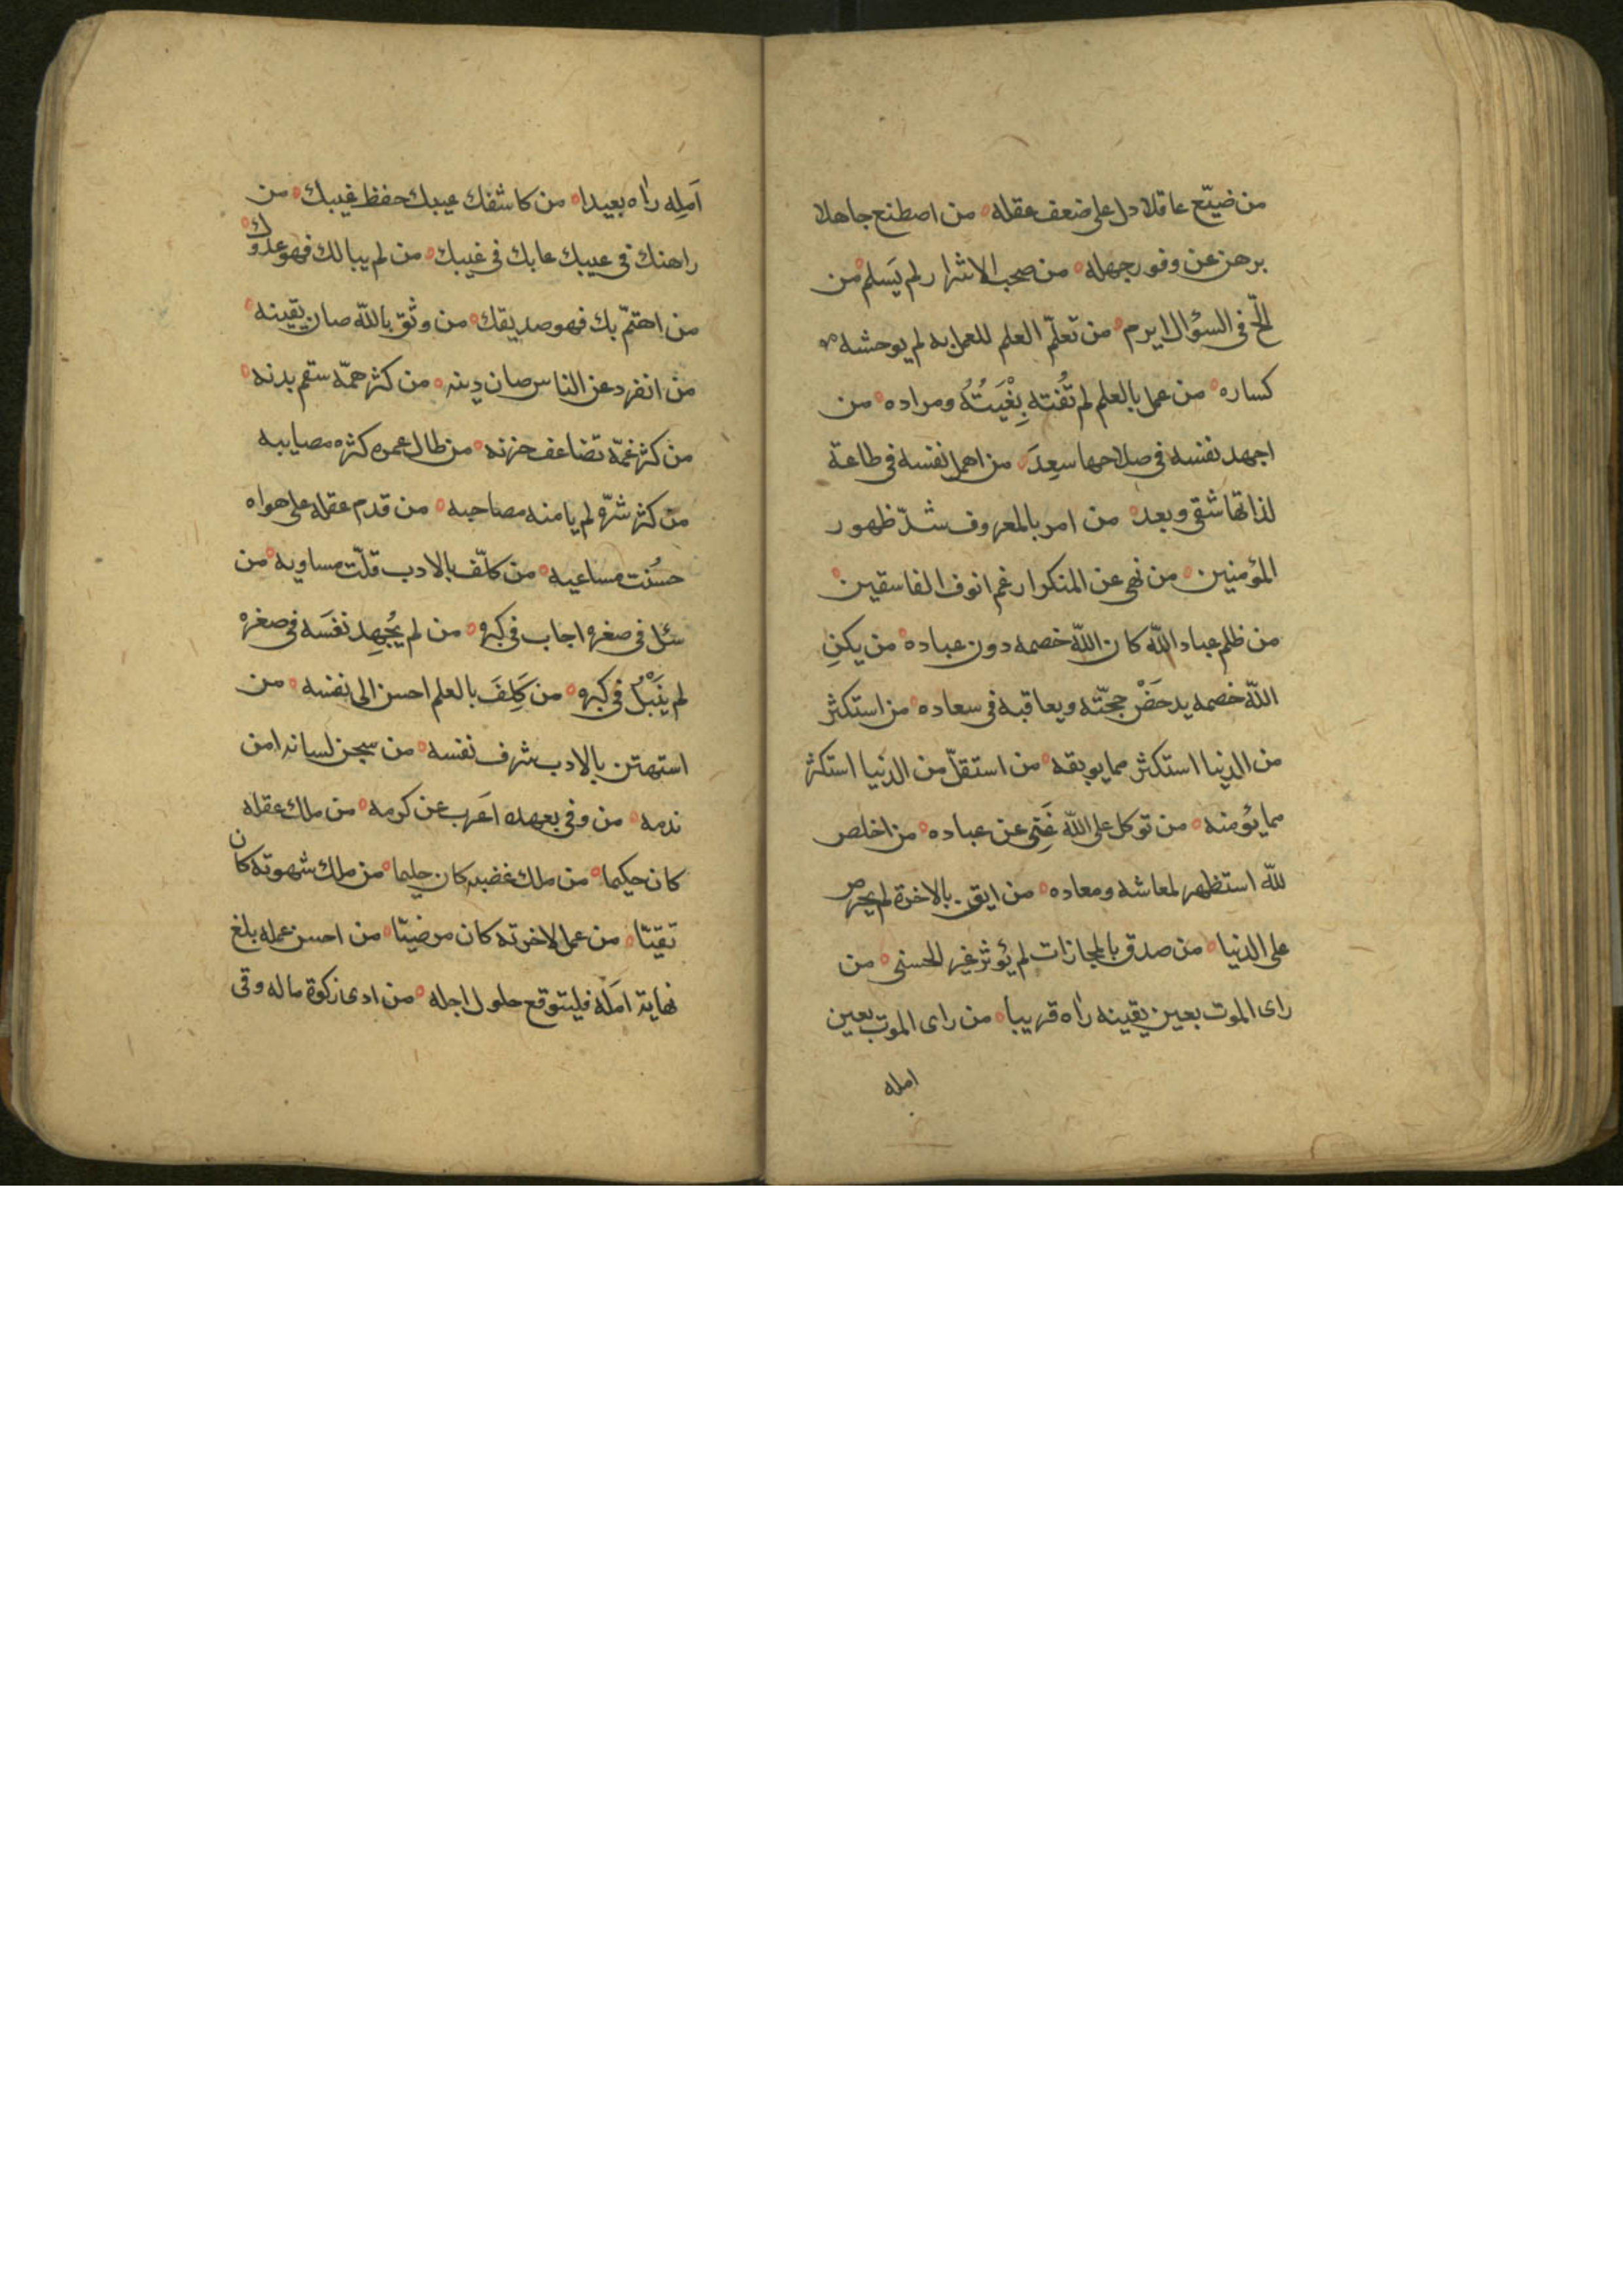 من ضيّع عاقلا دل على ضعف عقله ه من اصطنع جاهلا
برهن عن وفور جهله ه من صحب الاشرار لم يَسلم ه من
الحّ فى السؤال ابرم ه من تعلّم العلم للعمل به لم يوحشه
كساره ه من عمل بالعلم لم تُفته بِغْيَتُهُ ومراده ه من
اجهد نفسه فى صلاحها سعِدَ ه من اهمل نفسه فى طاعة
لذاتها شقى وبعد ه من امر بالمعروف شدّ ظهور
المؤمنين ه من نهى عن المنكر ارغم انوف الفاسقين ه
من ظلم عباد الله كان الله خصمه دون عباده ه من يكنِ
الله خصمه يدحَضْ حجّته ويعاقبه فى سعاده ه من استكثر
من الدنيا استكثر مما يوبقه ه من استقلّ من الدنيا استكثر
مما يؤمنه ه من توكل على الله غَنِى عن عباده ه من اخلص
لله استظهر لمعاشه ومعاده ه من ايقن بالاخرة لم يحرص
على الدنيا ه من صدق بالمجازات لم يؤثر غير الحسنى ه من
راى الموت بعين يقينه راٰه قريبا ه من راى الموت بعين
امله
اَمَلِه راٰه بعيدا ه من كاشفك عيبك حفظ غيبك ه من
راهنك فى عيبك عابك فى غيبك ه من لم يبالك فهو عدوّك ه
من اهتمّ بك فهو صديقك ه من وثق بالله صان يقينه ه
من انفرد عن الناس صان دينه ه من كثر همّه سقم بدنه ه
من كثر غمّه تضاعف حزنه ه من طال عمره كثره مصايبه
من كثر شرّه لم يامنه مصاحبه ه من قدم عقله على هواه
حسُنت مساعيه ه من كلّف بالادب قلّت مساويه ه من
سئل فى صغره اجاب فى كبره ه من لم يُجهِد نفسَه فى صغره
لم يَنْبُل فى كبره ه من كَلِفَ بالعلم احسن الى نفسه ه من
استهتن بالادب شرف نفسه ه من سجن لسانه امن
ندمه ه من وفى بعهده اَعَرب عن كرمه ه من ملك عقله
كان حكيما ه من ملك غضبه كان حليما ه من ملك شهوته كان
تقيّا ه من عمل لاخرته كان مرضيّا ه من احسن عمله بلغ
نهاية امَلَه فليتوقع حلول اجله ه من ادى زكوة ماله وقى